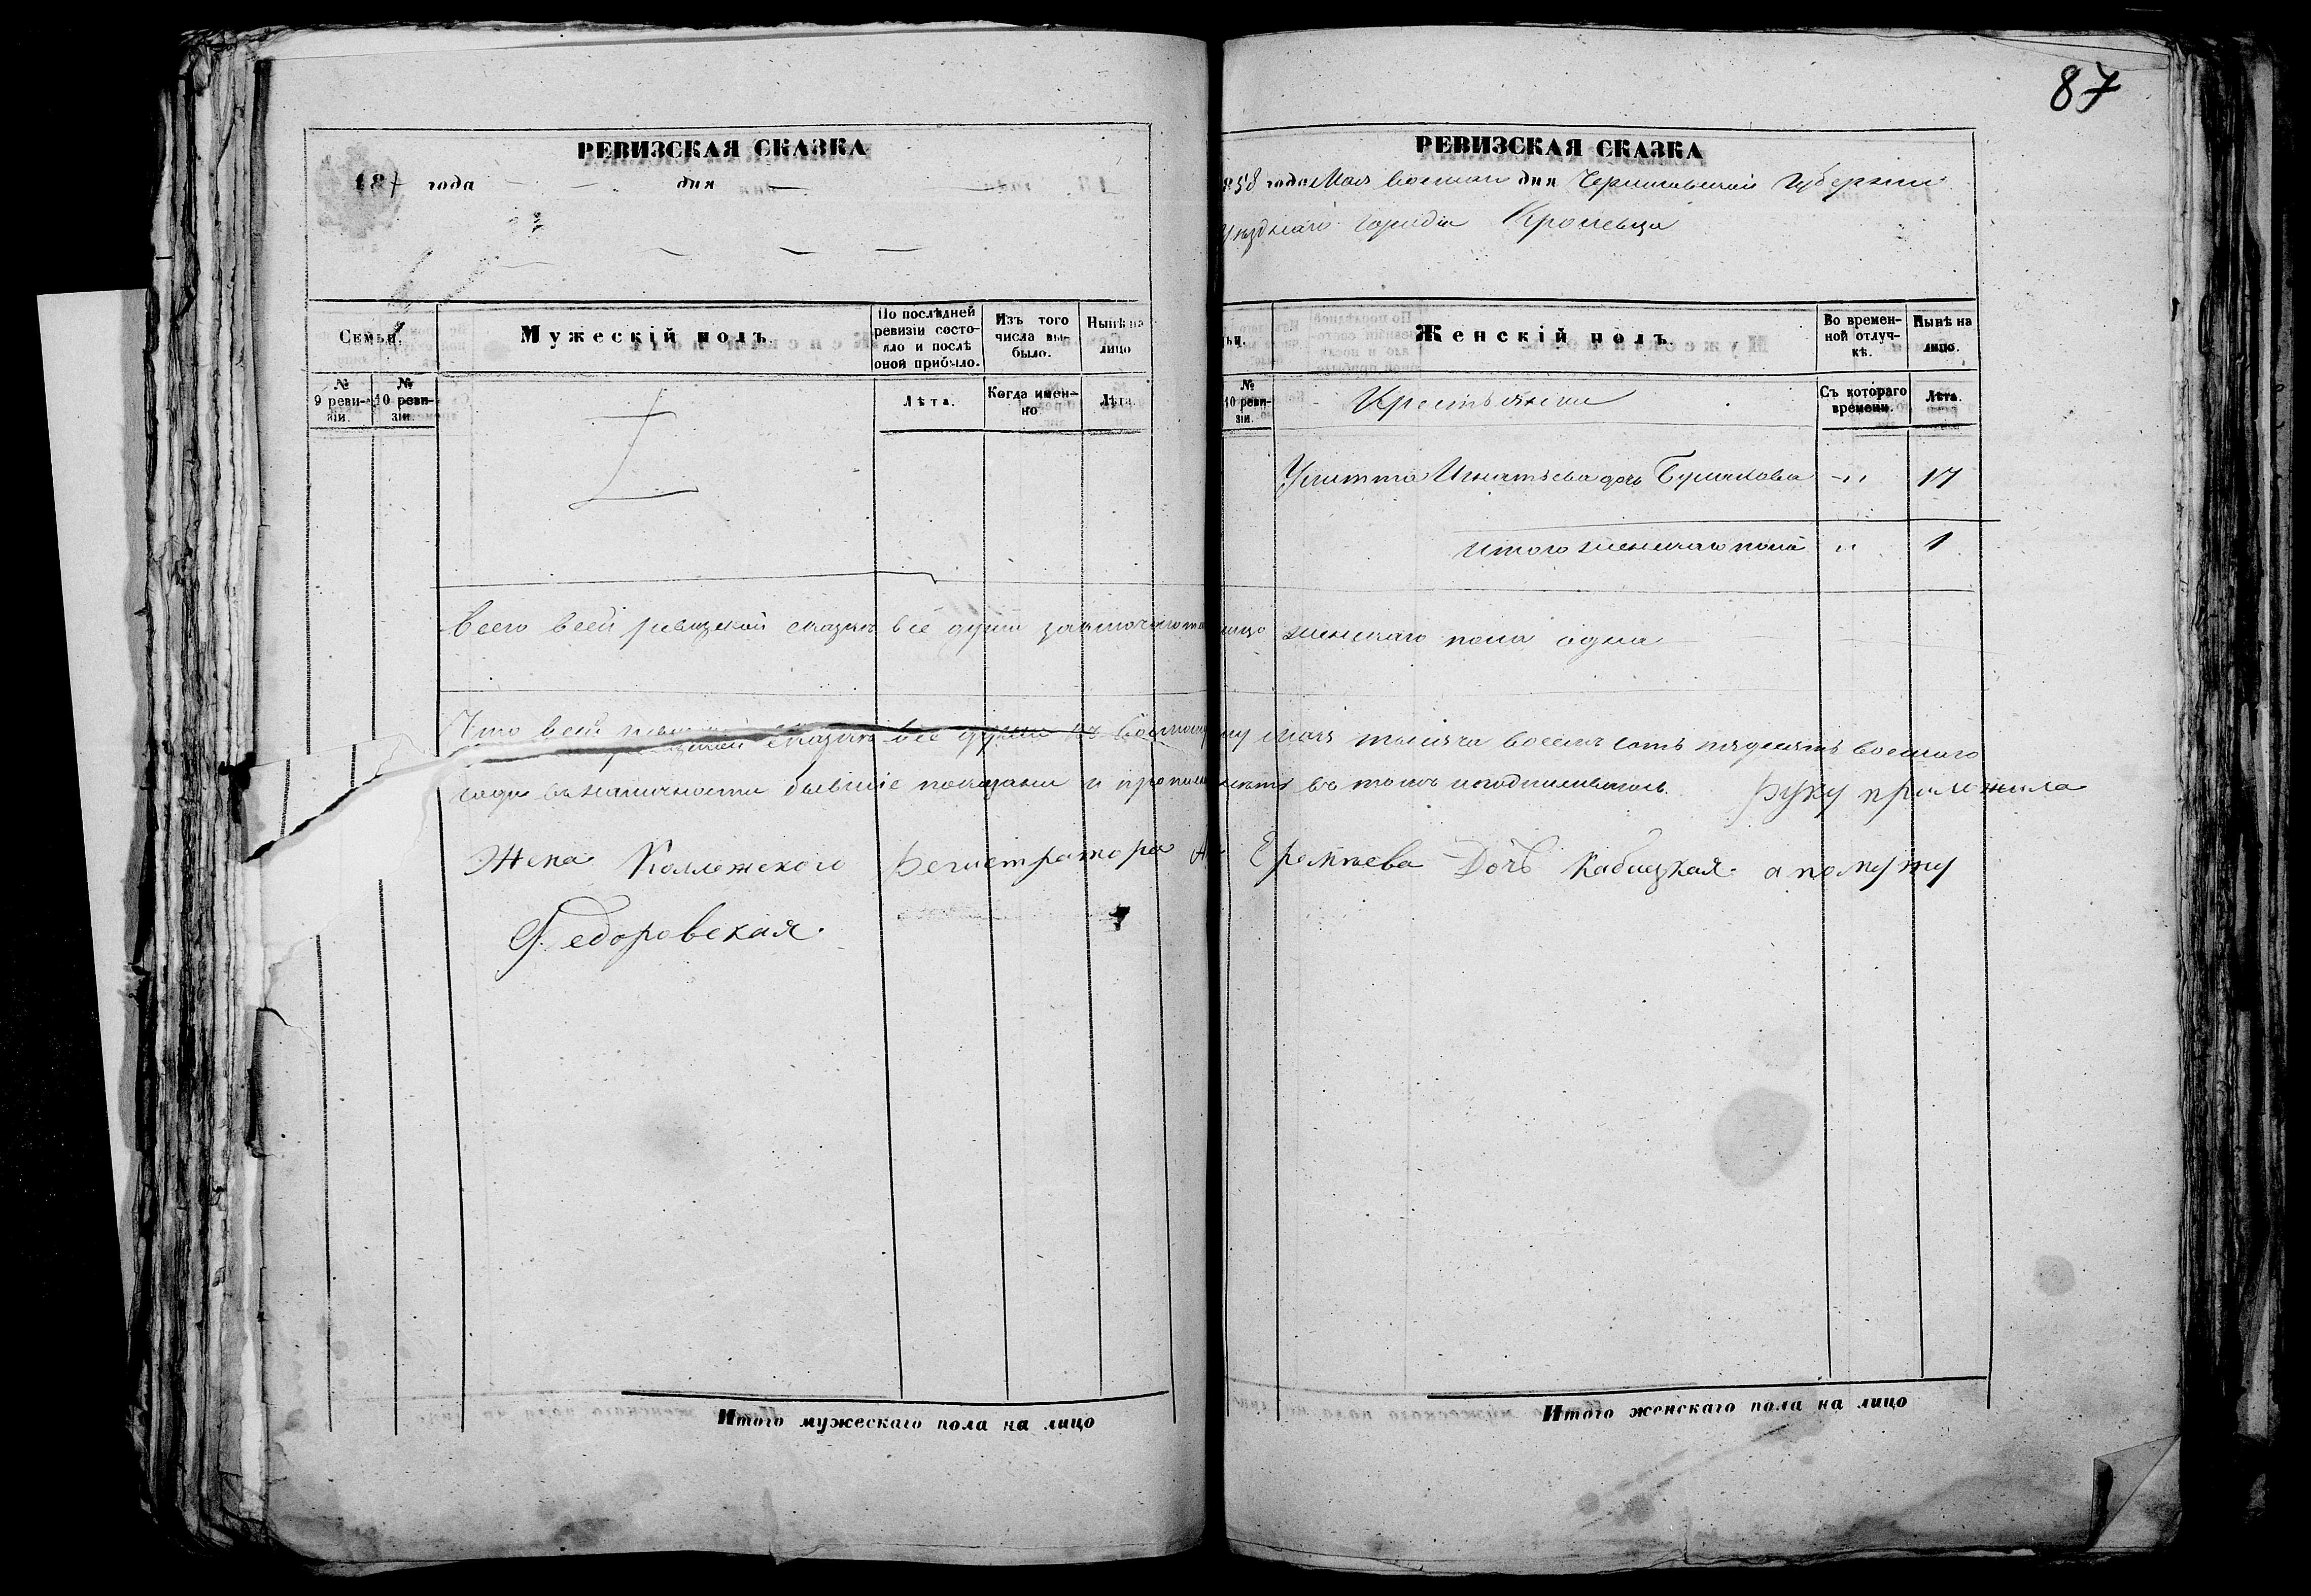 87
РЕВИЗСКАЯ СКАЗКА
18 года дня
Семьи.
Мужескій полъ.
По послѣдней ревизіи состо-
яло и послѣ
оной прибыло.
Изъ того
числа вы-
было.
Нынѣ на
лицо
№
9 реви-
зіи.
№
10 реви-
зіи.
Лѣта.
Когда имен-
но
Лѣта.
РЕВИЗСКАЯ СКАЗКА
858 года Мая восьмаго дня Черниговской Губерніи
уѣзднаго города Кролевца
ьи.
Женскій полъ.
Во времен-
ной отлуч-
кѣ.
Нынѣ на
лицо.
№
10 реви-
зіи.
Крестьянки
Съ котораго
времени.
Лѣта.
Улитта Игнатьева дочь 17
Итого женскаго пола 1
Всего в сей ревизской сказкѣ все души женскаго пола одна
Что в сей сказкѣ все души мая тысяча восемь сотъ пядесятъ восмаго
года въ наличности бывшіе показаны и въ томъ подписываюсь. Руку приложила
Жена Коллежского Регистратора Дочь Кабицкая а по мужу
Федоровская.
Итого мужескаго пола на лицо
Итого женскаго пола на лицо